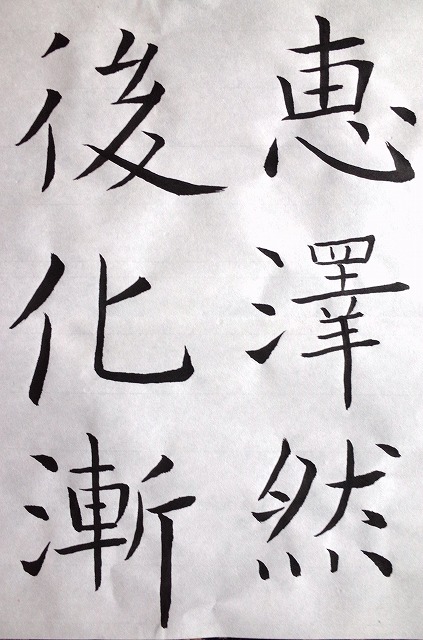 恵澤然
後化漸